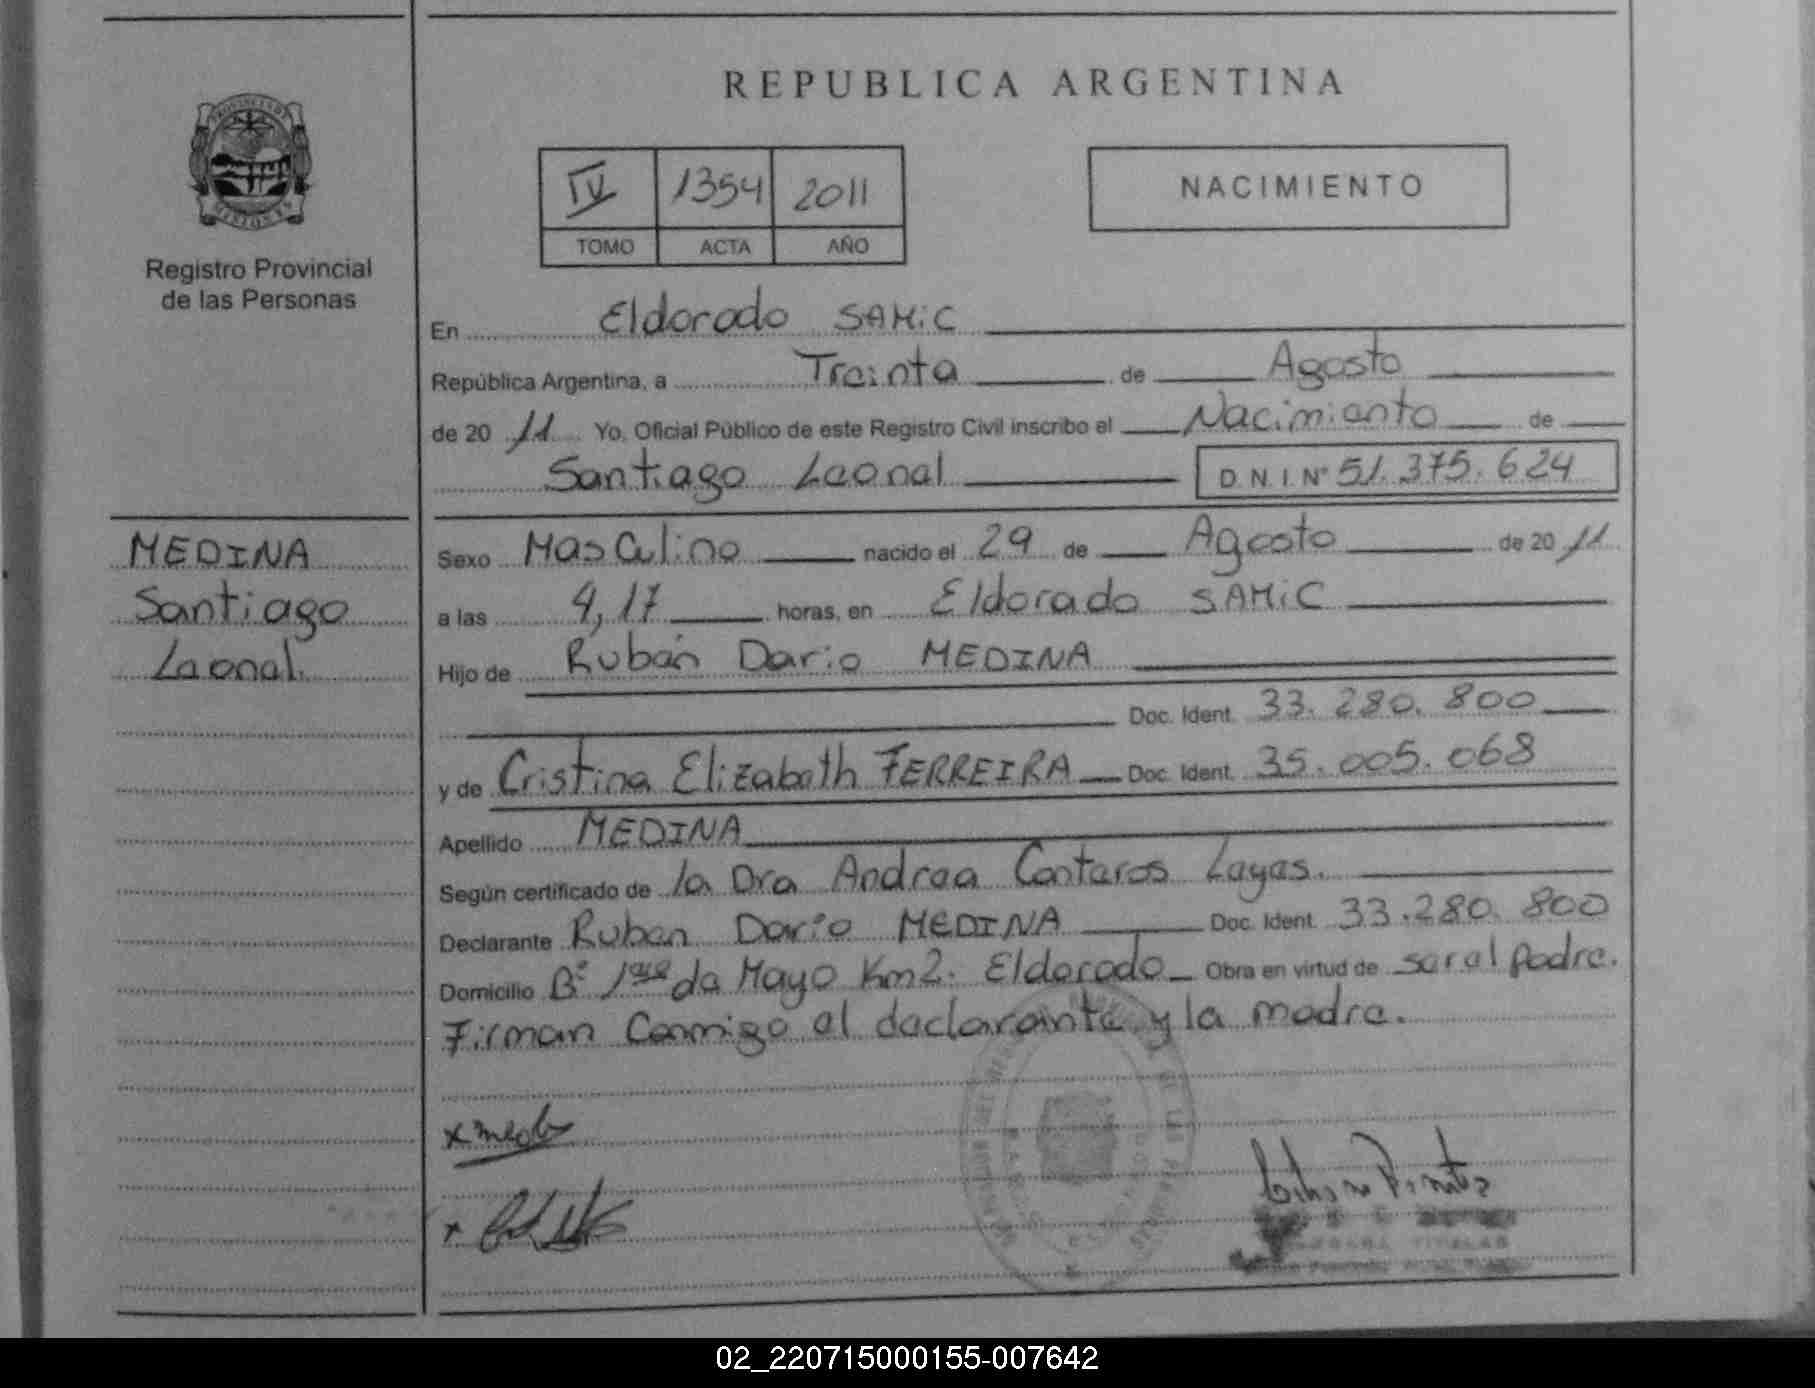 REPUBLICA ARGENTINA
IV 1354 2011
TOMO ACTA AÑO
NACIMIENTO
Registro Provincial
de las Personas
En Eldorado SAMiC
República Argentina, a Treinta de Agosto
de 20 11 Yo, Oficial Público de este Registro Civil inscribo el Nacimiento de
Santiago Leonel D.N.I.Nº 51.375.624
MEDINA
Santiago
Leonel.
Sexo Masculino nacido el 29 de Agosto de 20 11
a las 4,17 horas, en Eldorado SAMiC
Hijo de Rubén Dario MEDINA
Doc. Ident. 33.280.800
y de Cristina Elizabeth FERREIRA Doc. Ident. 35.005.068
Apellido MEDINA
Según certificado de la Dra Andrea Conteros Layes.
Declarante Ruben Dario MEDINA Doc. Ident. 33.280.800
Domicilio Bº 1ero de Mayo Km2. Eldorado Obra en virtud de ser el padre.
Firman Conmigo el declarante y la madre.
02_220715000155-007642